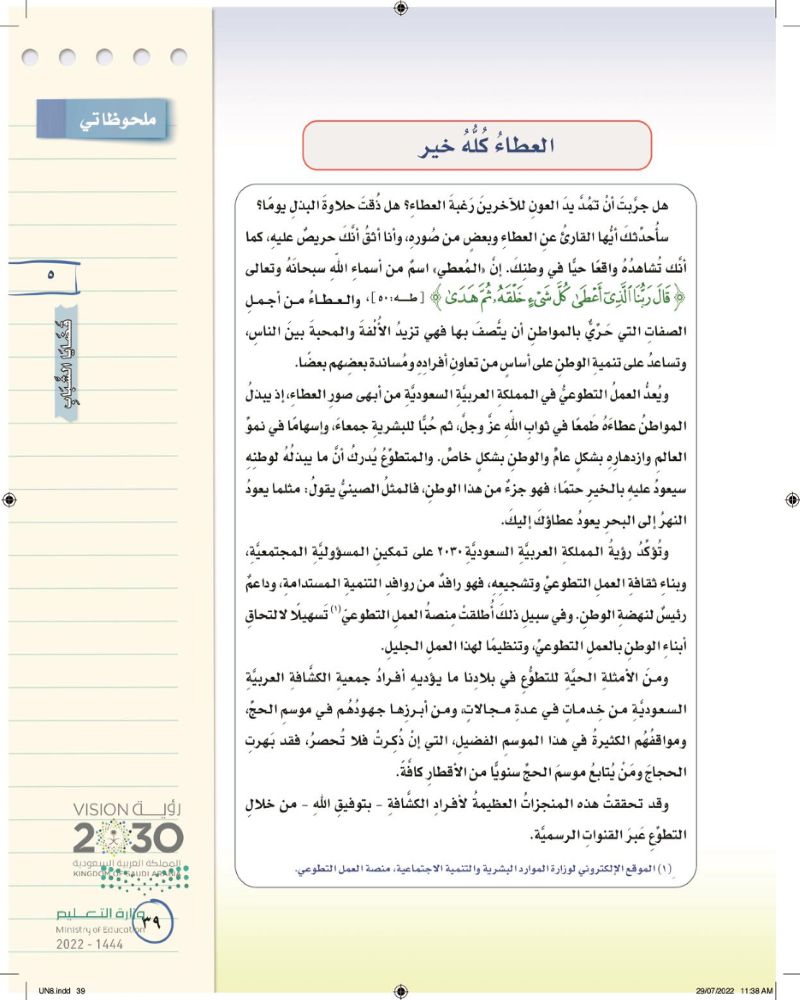 ملحوظاتي
العطاءُ كُلُّهُ خير
هل جرَّبتَ أنْ تمُدَّ يدَ العون للآخرينَ رَغبةَ العطاءِ؟ هل ذُقتَ حلاوةَ البذلِ يومًا؟
سأُحدِّثكَ أيُّها القارئُ عن العطاءِ وبعضٍ من صُورِهِ، وأنا أثقُ أنَّكَ حريصٌ عليهِ، كما
أنَّك تُشاهدُهُ واقعًا حيًّا في وطنِكَ. إنَّ «المُعطي» اسمٌ من أسماءِ اللّٰهِ سبحانَهُ وتعالى
﴿قَالَ رَبُّنَا الَّذِيٓ أَعْطَىٰ كُلَّ شَيْءٍ خَلْقَهُۥ ثُمَّ هَدَىٰ﴾ [طـه:٥٠]، والعطاءُ من أجملِ
الصفاتِ التي حَرِيٌّ بالمواطنِ أن يتَّصفَ بها فهي تزيدُ الأُلْفةَ والمحبةَ بينَ الناسِ،
وتساعدُ على تنميةِ الوطنِ على أساسٍ من تعاونِ أفرادِهِ ومُساندةِ بعضِهم بعضًا.
ويُعدُّ العملُ التطوعيُّ في المملكةِ العربيَّةِ السعوديَّةِ من أبهى صورِ العطاءِ، إذ يبذلُ
المواطنُ عطاءَهُ طَمعًا في ثوابِ اللّٰهِ عزَّ وجلَّ، ثم حُبًّا للبشريةِ جمعاءَ، وإسهامًا في نموِّ
العالمِ وازدهارِهِ بشكلٍ عامٍّ والوطنِ بشكلٍ خاصٍّ. والمتطوِّعُ يُدركُ أنَّ ما يبذلُهُ لوطنِهِ
سيعودُ عليهِ بالخيرِ حتمًا؛ فهو جزءٌ من هذا الوطنِ، فالمثلُ الصينيُّ يقولُ: مثلما يعودُ
النهرُ إلى البحرِ يعودُ عطاؤكَ إليكَ.
وتُؤكِّدُ رؤيةُ المملكةِ العربيَّةِ السعوديَّةِ ٢٠٣٠ على تمكينِ المسؤوليَّةِ المجتمعيَّةِ،
وبناءِ ثقافةِ العملِ التطوعيِّ وتشجيعِهِ، فهو رافدٌ من روافدِ التنميةِ المستدامةِ، وداعمٌ
رئيسٌ لنهضةِ الوطنِ. وفي سبيلِ ذلكَ أُطلقتْ مِنصةُ العملِ التطوعيِّ(١) تَسهيلًا لالتحاقِ
أبناءِ الوطنِ بالعملِ التطوعيِّ، وتنظيمًا لهذا العملِ الجليلِ.
ومنَ الأمثلةِ الحيَّةِ للتطوُّعِ في بلادِنا ما يؤديهِ أفرادُ جمعيةِ الكشَّافةِ العربيَّةِ
السعوديَّةِ من خِدماتٍ في عدةِ مجالاتٍ، ومن أبرزِها جهودُهُم في موسمِ الحجِّ،
ومواقفُهُم الكثيرةُ في هذا الموسمِ الفضيلِ، التي إنْ ذُكِرتْ فلا تُحصرُ، فقد بَهرتِ
الحجاجَ ومَنْ يُتابعُ موسمَ الحجِّ سنويًّا من الأقطارِ كافَّةً.
وقد تحققتْ هذه المنجزاتُ العظيمةُ لأفرادِ الكشَّافةِ - بتوفيقِ اللّٰهِ - من خلالِ
التطوِّعِ عَبرَ القنواتِ الرسميَّةِ.
(١) الموقع الإلكتروني لوزارة الموارد البشرية والتنمية الاجتماعية، منصة العمل التطوعي.
٥
قَضَايَا الشَّبَابِ
رؤيـة VISION
2030
المملكة العربية السعودية
KINGDOM OF SAUDI ARABIA
وزارة التعـليم
Ministry of Education
2022 - 1444
٣٩
UN8.indd 39
29/07/2022 11:38 AM